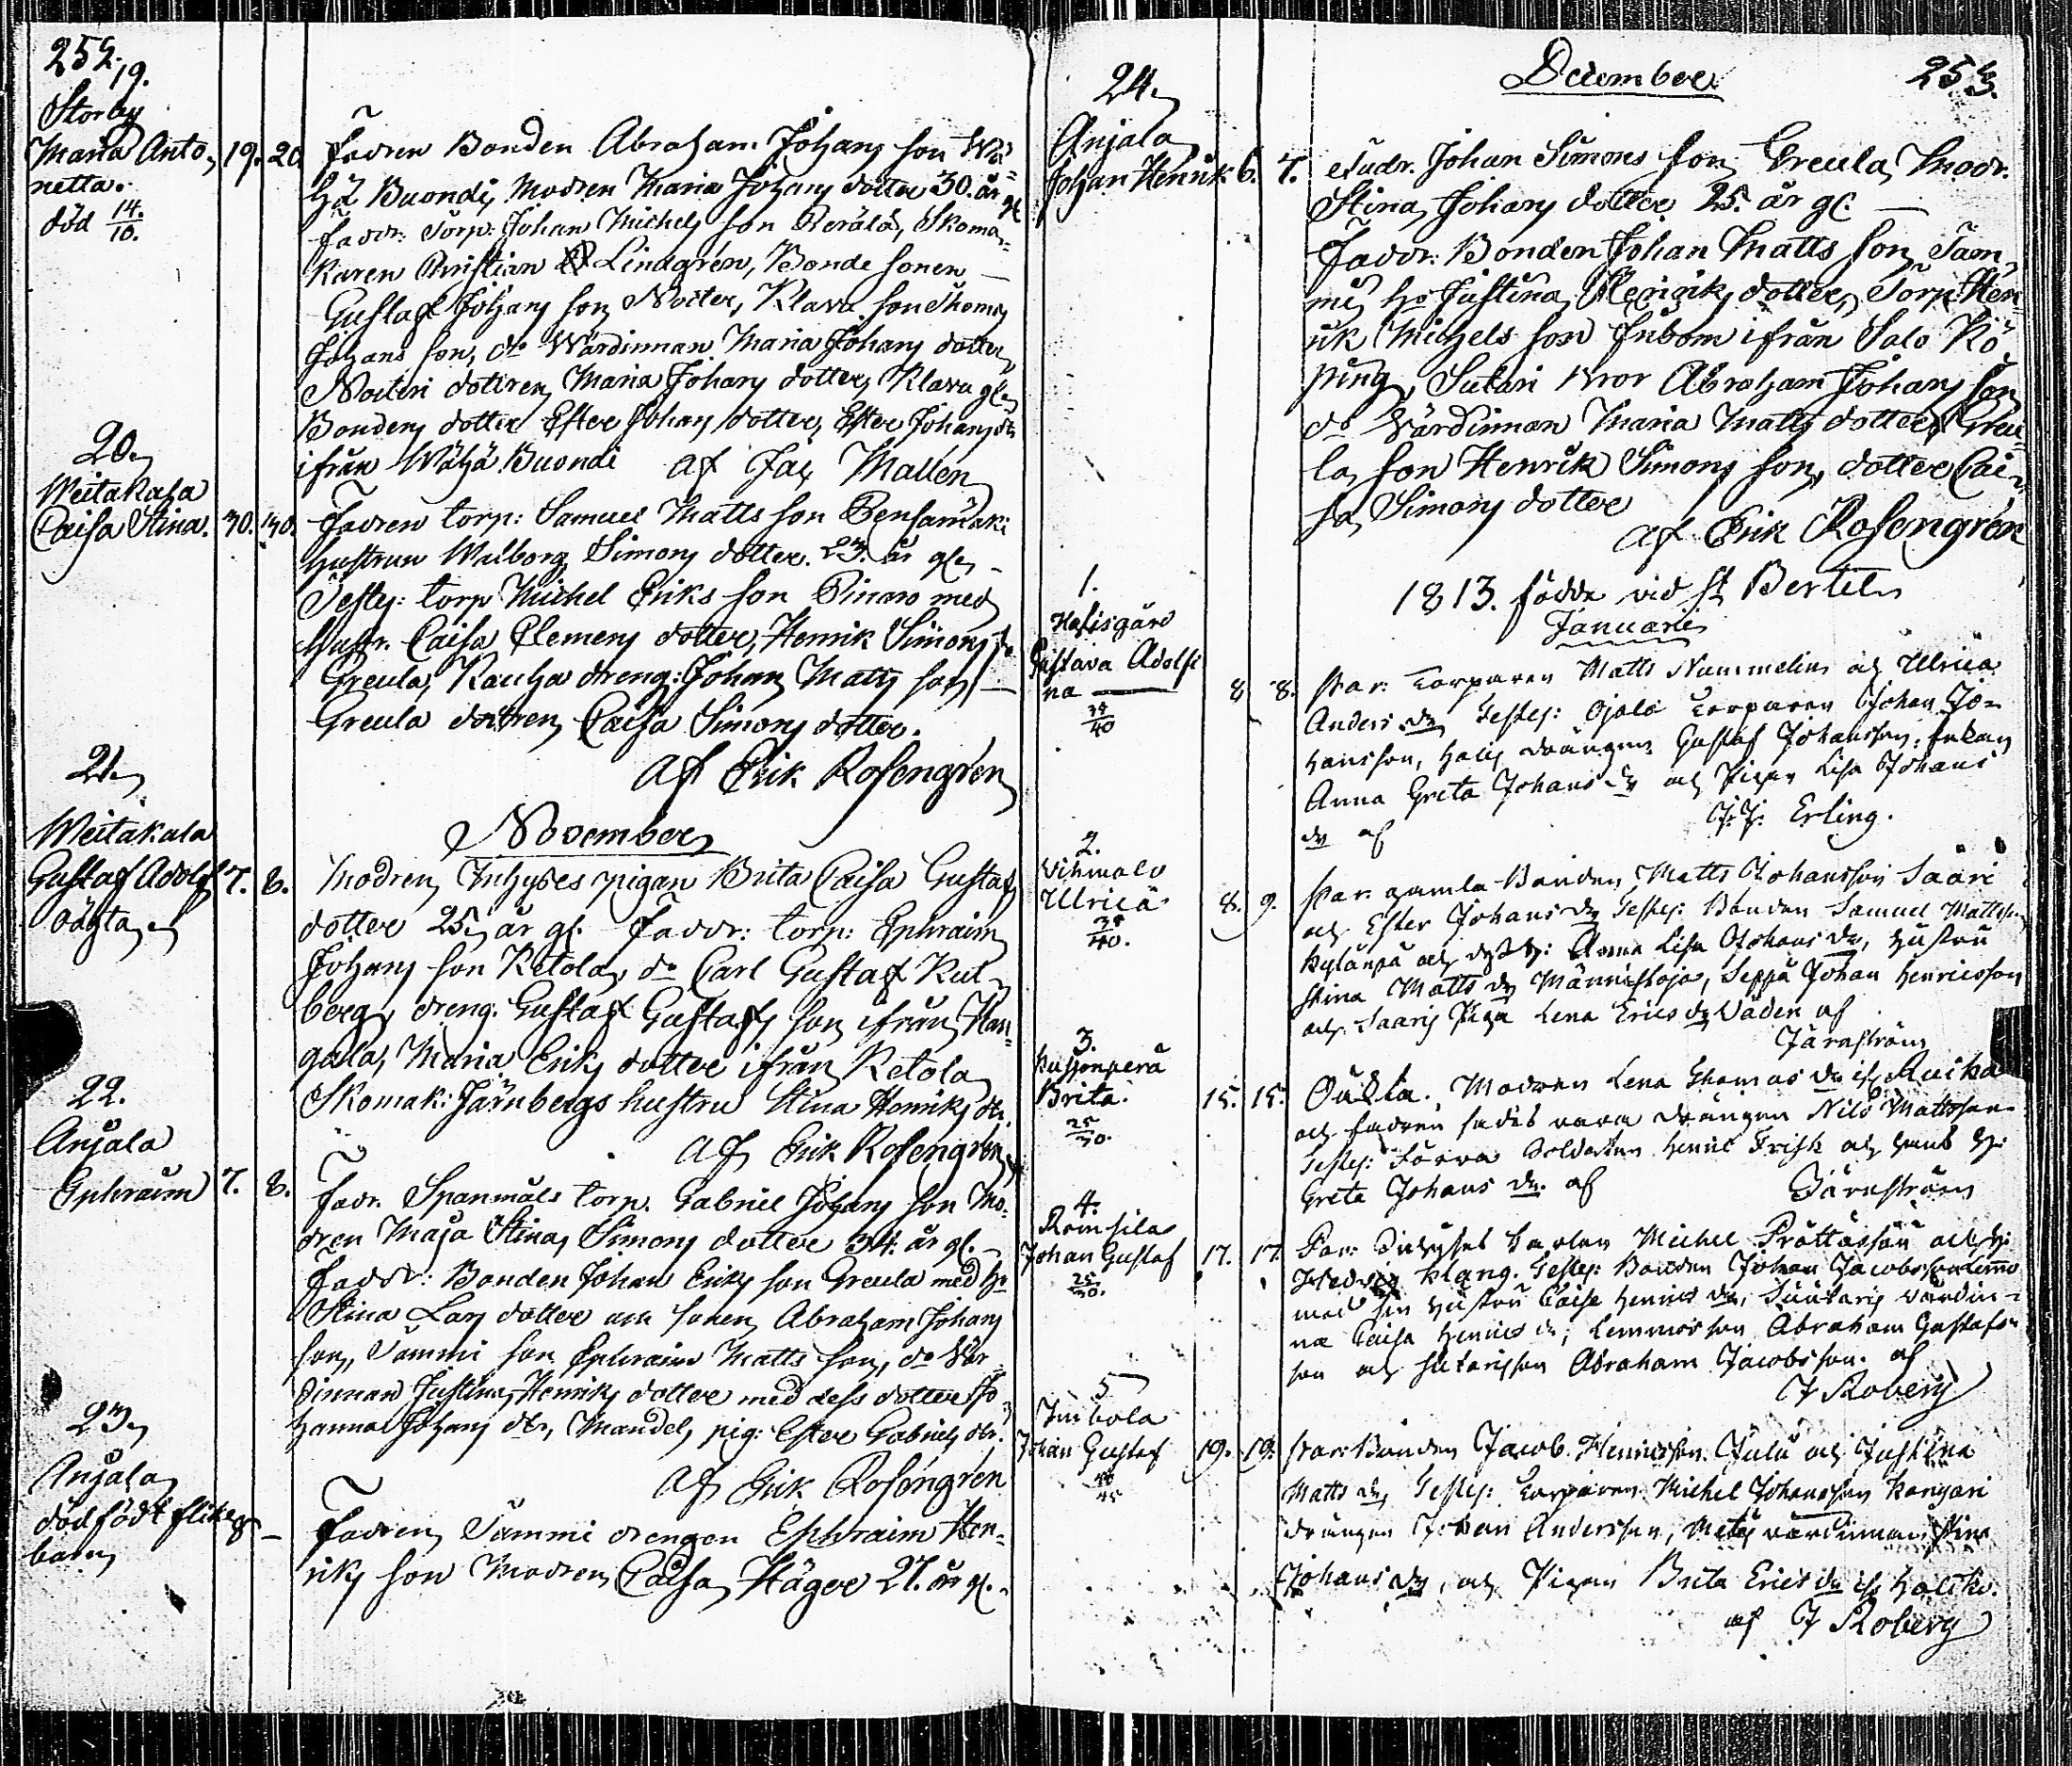 252.
19.
Storby
Maria Anto,
netta.
död 14./10.
19. 20.
Fadren Bonden Abraham Johans son Wä=
hä Buondi, Modren Maria Johans dotter 30. år gl
Faddr: Torp: Johan Michels son Perälä, Skoma,
karen Christian Lindgrén, Bonde sonen
Gustaf Johans son Noiter, Klava son Thomas
Johans son, do Wärdinnan Maria Johans dotter
Noiteri dottren Maria Johans dotter, Klava gl.
Bondens dotter Ester Johans dotter, Ester Johans dr
ifrån Wähä Buondi af Jac Mallen
20.
Weitakala
Caisa Stina. 30. 30.
Fadren torp: Samuel Matts son Pensamäki
hustrun Walborg Simons dotter. 23. år gl.
Testes: torp Michel Eriks son Pinaro med
hustr. Caisa Clemens dotter, Henrik Simons s.
Greula, Rauha dreng: Johan Matts son,
Greula dottren Caisa Simons dotter.
af Erik Rosengrén
November
21.
Weitakala
Gustaf Adolf 7. 8.
oägta
Modren Inhyses pigan Brita Caisa Gustafs
dotter 25. år gl. Faddr: torp: Ephraim
Johans son Ketola, do Carl Gustaf Kul-
berg, dreng. Gustaf Gustafs son ifrån Kan=
gala, Maria Eriks dotter ifrån Ketola
Skomak: Järnbergs hustru Stina Henriks dr.
af Erik Rosengrén
22.
Anjala
Ephraim 7. 8.
Fadr. Spanmåls torp. Gabriel Johans son Mo-
dren Maja Stina Simons dotter 34. år gl.
Faddr: Bonden Johan Eriks son Greula med ho
Stina Lars dotter och sonen Abraham Johans
son, Tammi son Ephraim Matts son, do Wär
dinnan Justina Henriks dotter med dess dotter Jo
hanna Johans dtr, Mandels pig: Ester Gabriels dtr.
af Erik Rosengrén
23.
Anjala
dödfödt flike
barn
Fadren Tammi drengen Ephraim Hen-
riks son Modren Caisa Häger 27. år gl.
December 253.
24.
Anjala
Johan Henrik 6. 7.
Fadr. Johan Simons son Greula, Modr.
Stina Johans dotter 25. år gl.
Faddr: Bonden Johan Matts son Tam,
mi, ho Justina Henriks dotter, Torp. Hen
rik Michels son Fribom ifrån Salo Kö
ping, Sutari Bror Abraham Johans son
do Wärdinnan Maria Matts dotter, Greu
la son Henrik Simons son, dotter Cai-
sa Simons dotter
af Erik Rosengrén
1813. födde vid St Bertils
Januarii
1.
Halisgård
Gustava Adolfi
na
8 8.
Par: Torparen Matts Nummelin och Ulrica
Anders dr Testes: Ojala Torparen Johan Jo-
hansson, Halis drängen Gustaf Johansson,
Anna Greta Johans dr och Pigan Lisa Johans
dr af J: J: Erling.
2.
Ulrica 8. 9.
30/40.
Par: gamla Bonden Matts Johansson Saari
och Ester Johans dr Testes: Bonden Samuel Mattsson
och Anna Lisa Johans dr, hustru
Stina Matts dr Männistöja, Seppä Johan Henricsson
och Saaris Piga Lena Erics dr Väden af
Järnström
3.
Brita. 15. 15.
25/30.
Oäkta. Modren Lena Thomas dr if. Ruika
och fadren sades vara drängen Nils Mattsson
Testes: Soldaten Henric Frisk och hans h:
Greta Johans dr. af Järnström
4.
Johan Gustaf 17. 17.
25/30.
Par: Inhyses karlen Michel Prättässon och h:
Hedvig Klang. Testes: Bonden Johan Jacobsson
med sin hustru Caisa Henrics dr, Suutaris värdin-
na Caisa Henrics dr, Abraham Gustafs
son och Sutarisson Abraham Jacobsson. af
J Roberg
5
Johan Gustaf 19. 19.
Par: Bonden Jacob Henricsson Julu och Justina
Matts dr, Testes: Torparen Michel Johansson Kangari
drängen Johan Andersson, värdinnan Stina
Johans dr, och Pigan Brita Erics dr
af J Roberg